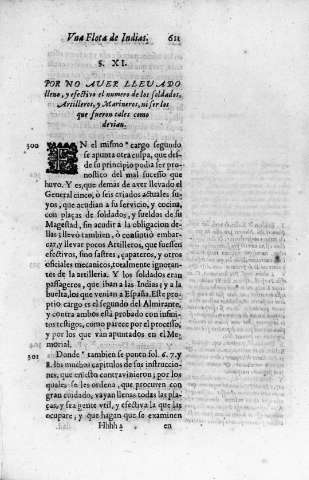 Vna Flota de Indias. 621
§. XI.
POR NO AVER LLEVADO
lleno, y efectivo el numero de los soldados,
Artilleros, y Marineros, ni ser los
que fueron tales como
devian.
300 EN el mismo cargo segundo
se apunta otra culpa, que des-
de su principio podia ser pro-
nostico del mal sucesso que
huvo. Y es, que demas de aver llevado el
General cinco, ò seis criados actuales su-
yos, que acudian a su servicio, y cocina,
con plaças de soldados, y sueldos de su
Magestad, sin acudir a la obligacion de-
llas; llevò tambien, ò consintiò embar-
car, y llevar pocos Artilleros, que fuessen
efectivos, sino sastres, çapateros, y otros
oficiales mecanicos, totalmente ignoran-
tes de la artilleria. Y los soldados eran
passageros, que iban a las Indias; y a la
buelta, los que venian a España. Este pro-
prio cargo es el segundo del Almirante,
y contra ambos està probado con infini-
tos testigos, como parece por el processo,
y por los que van apuntados en el Me-
morial.
301 Donde tambien se ponen fol. 6. 7. y
8. los muchos capitulos de sus instruccio-
nes, que en esto contravinieron; por los
quales se les ordena, que procuren con
gran cuidado, vayan llenas todas las pla-
ças, y sea gente vtil, y efectiva la que las
ocupare; y que hagan que se examinen
Hhhh 2 en